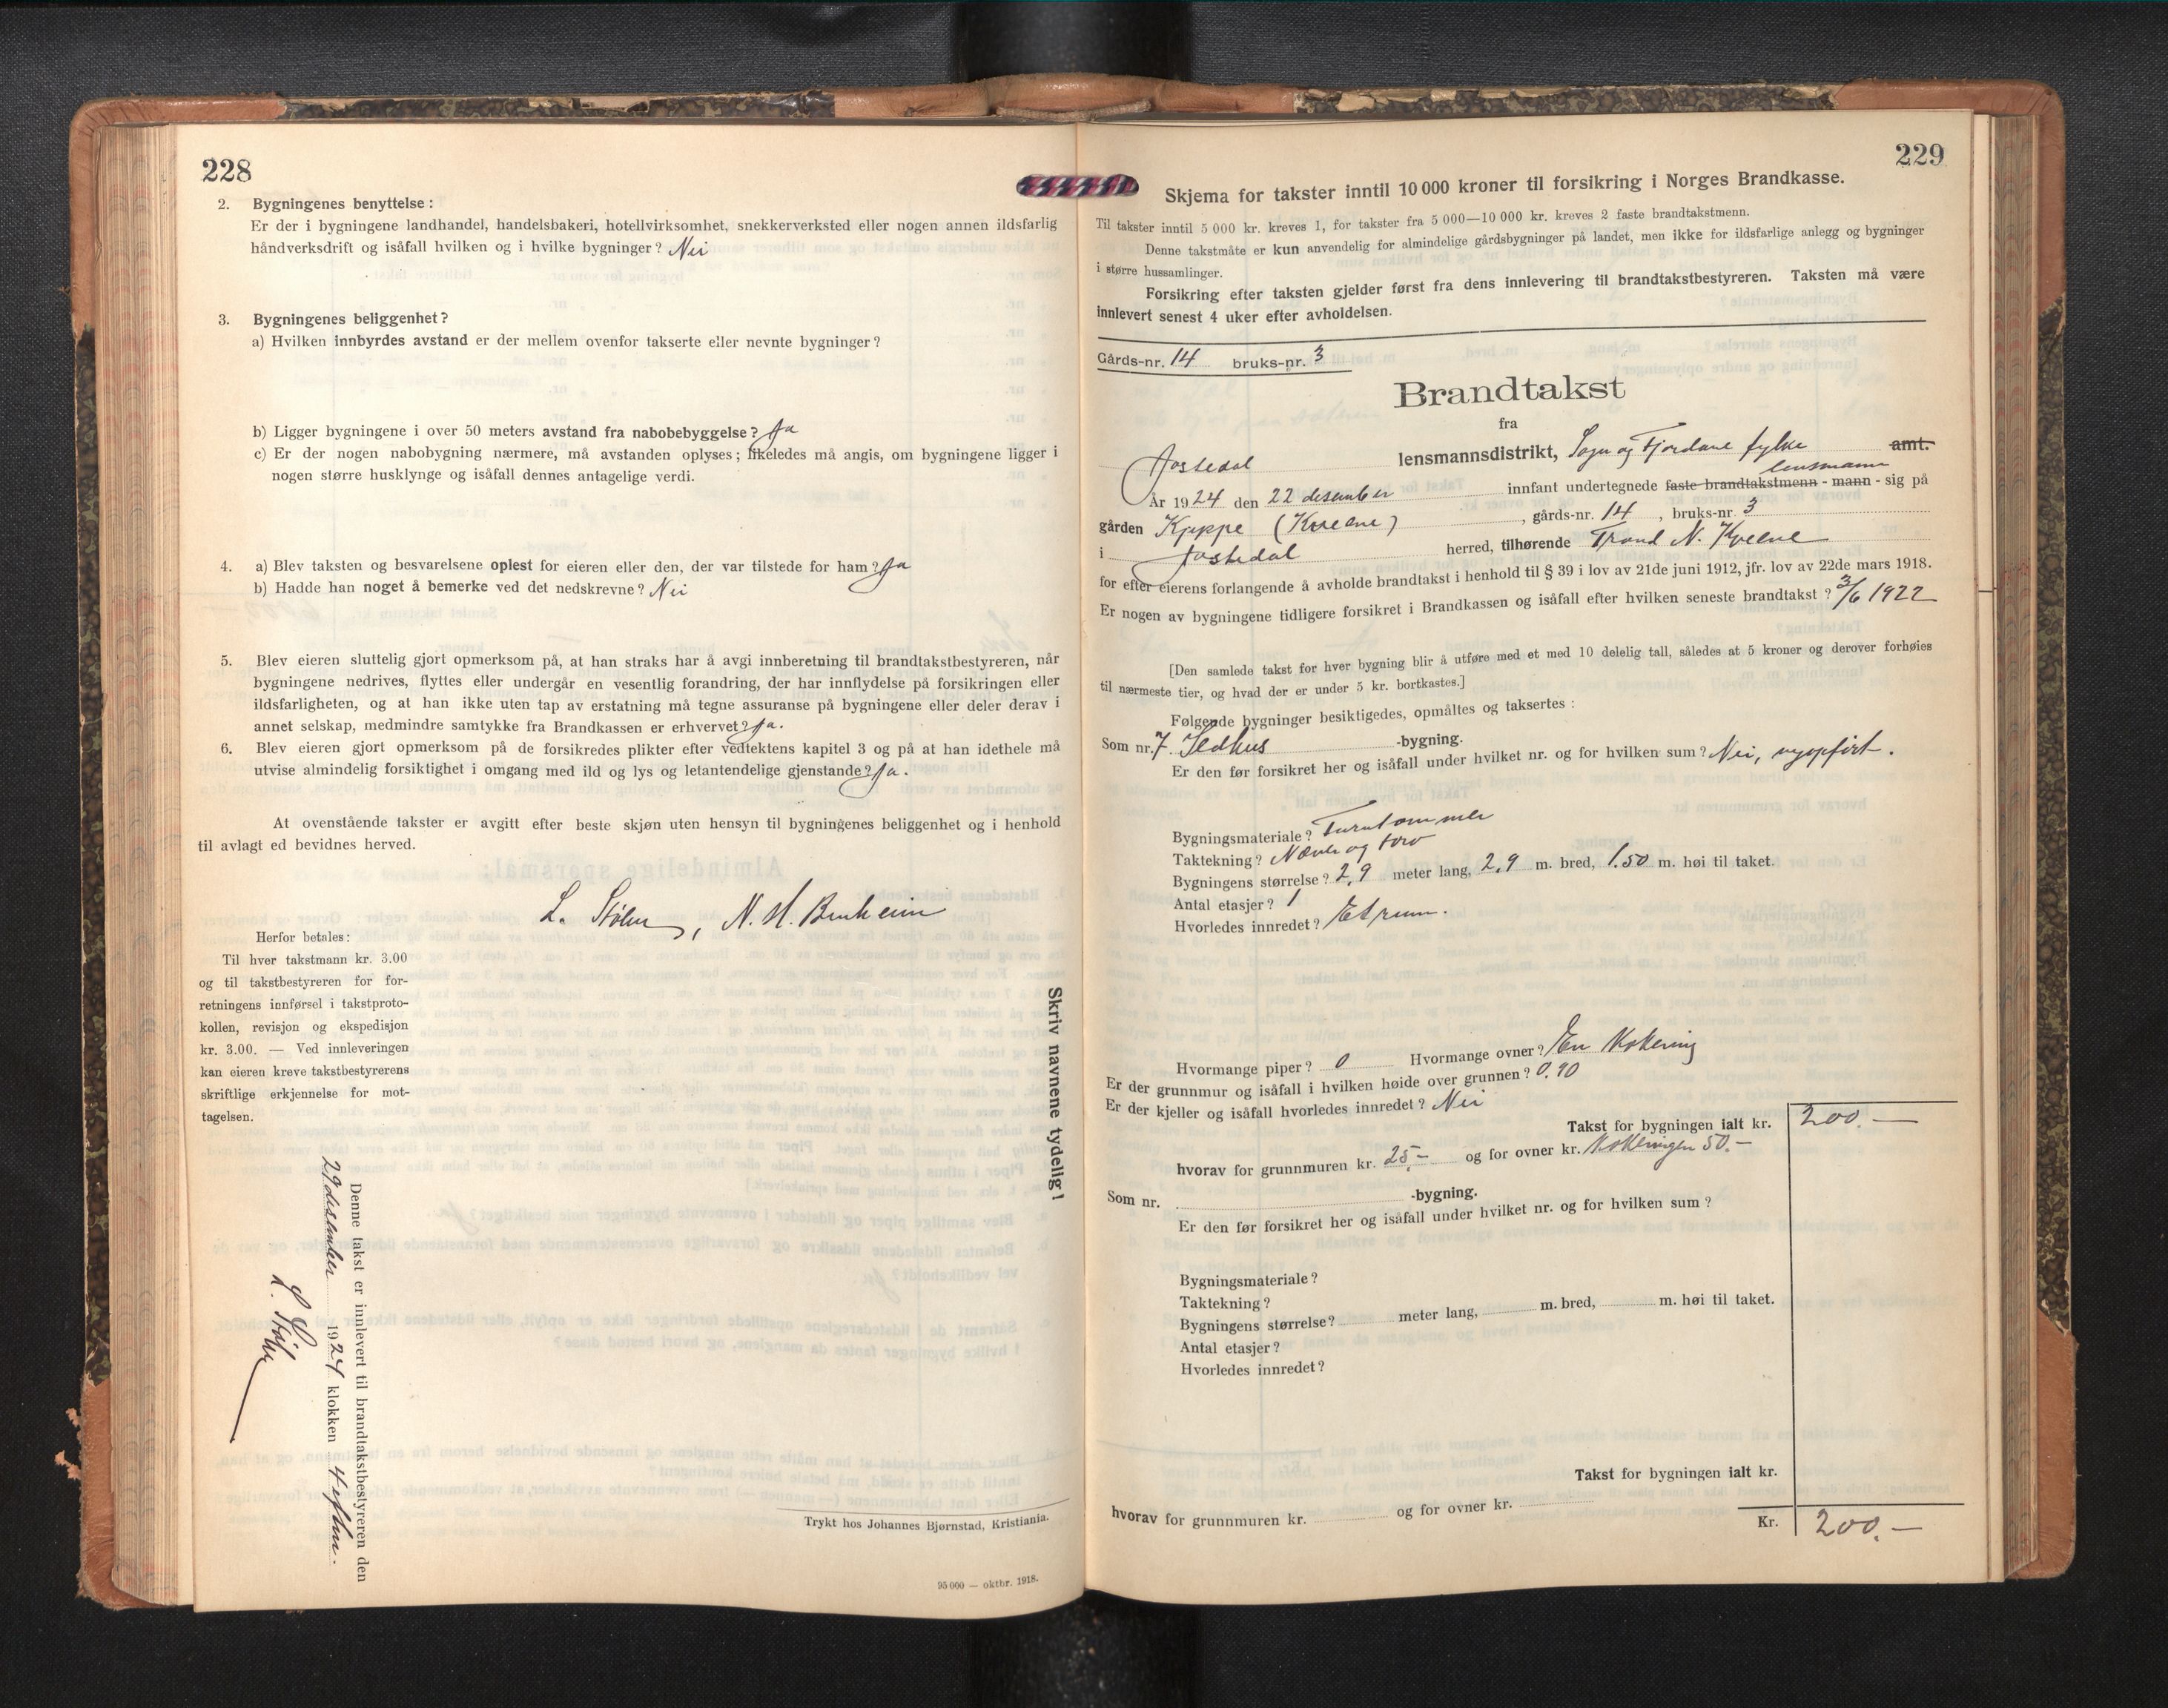 228
2. Bygningenes benyttelse:
Er der i bygningene landhandel, handelsbakeri, hotellvirksomhet, snekkerverksted eller nogen annen ildsfarlig
håndverksdrift og isåfall hvilken og i hvilke bygninger? Nei
3. Bygningenes beliggenhet?
a) Hvilken innbyrdes avstand er der mellem ovenfor takserte eller nevnte bygninger?
b) Ligger bygningene i over 50 meters avstand fra nabobebyggelse? Ja
c) Er der nogen nabobygning nærmere, må avstanden oplyses; likeledes må angis, om bygningene ligger i
nogen større husklynge og isåfall dennes antagelige verdi.
4. a) Blev taksten og besvarelsene oplest for eieren eller den, der var tilstede for ham? Ja
b) Hadde han noget å bemerke ved det nedskrevne? Nei
5. Blev eieren sluttelig gjort opmerksom på, at han straks har å avgi innberetning til brandtakstbestyreren, når
bygningene nedrives, flyttes eller undergår en vesentlig forandring, der har innflydelse på forsikringen eller
ildsfarligheten, og at han ikke uten tap av erstatning må tegne assuranse på bygningene eller deler derav i
annet selskap, medmindre samtykke fra Brandkassen er erhvervet? Ja.
6. Blev eieren gjort opmerksom på de forsikredes plikter efter vedtektens kapitel 3 og på at han idethele må
utvise almindelig forsiktighet i omgang med ild og lys og letantendelige gjenstande? Ja.
At ovenstående takster er avgitt efter beste skjøn uten hensyn til bygningenes beliggenhet og i henhold
til avlagt ed bevidnes herved.
L. Stølen, N. H. Bruheim
Herfor betales:
Til hver takstmann kr. 3.00
og til takstbestyreren for for-
retningens innførsel i takstproto-
kollen, revisjon og ekspedisjon
kr. 3.00. — Ved innleveringen
kan eieren kreve takstbestyrerens
skriftlige erkjennelse for mot-
tagelsen.
Skriv navnene tydelig!
Denne takst er innlevert til brandtakstbestyreren den
29 desember 1924 klokken 4 eftm.
L. Stølen
Trykt hos Johannes Bjørnstad, Kristiania.
95 000 — oktbr. 1918.
229
Skjema for takster inntil 10 000 kroner til forsikring i Norges Brandkasse.
Til takster inntil 5 000 kr. kreves 1, for takster fra 5 000—10 000 kr. kreves 2 faste brandtakstmenn.
Denne takstmåte er kun anvendelig for almindelige gårdsbygninger på landet, men ikke for ildsfarlige anlegg og bygninger
i større hussamlinger.
Forsikring efter taksten gjelder først fra dens innlevering til brandtakstbestyreren. Taksten må være
innlevert senest 4 uker efter avholdelsen.
Gårds-nr. 14 bruks-nr. 3
Brandtakst
fra
Jostedal lensmannsdistrikt, Sogn og Fjordane fylke amt.
lensmann
År 1924 den 22 desember innfant undertegnede faste brandtakstmenn - mann - sig på
gården Kjeppe (Kveene), gårds-nr. 14, bruks-nr. 3
i Jostedal herred, tilhørende Trond N. Kveene
for efter eierens forlangende å avholde brandtakst i henhold til § 39 i lov av 21de juni 1912, jfr. lov av 22de mars 1918.
Er nogen av bygningene tidligere forsikret i Brandkassen og isåfall efter hvilken seneste brandtakst? 3/6 1922
[Den samlede takst for hver bygning blir å utføre med et med 10 delelig tall, således at 5 kroner og derover forhøies
til nærmeste tier, og hvad der er under 5 kr. bortkastes.]
Følgende bygninger besiktigedes, opmåltes og taksertes:
Som nr. 7. Ildhus -bygning.
Er den før forsikret her og isåfall under hvilket nr. og for hvilken sum? Nei, nyopført.
Bygningsmateriale? Furutømmer
Taktekning? Næver og torv
Bygningens størrelse? 2,9 meter lang, 2,9 m. bred, 1.50 m. høi til taket.
Antal etasjer? 1
Hvorledes innredet? Et rum.
Hvormange piper? 0 Hvormange ovner? En kokering
Er der grunnmur og isåfall i hvilken høide over grunnen? 0.90
Er der kjeller og isåfall hvorledes innredet? Nei
Takst for bygningen ialt kr. 200.—
hvorav for grunnmuren kr. 25,— og for ovner kr. kokeringen 50.—
Som nr. -bygning.
Er den før forsikret her og isåfall under hvilket nr. og for hvilken sum?
Bygningsmateriale?
Taktekning?
Bygningens størrelse? meter lang, m. bred, m. høi til taket.
Antal etasjer?
Hvorledes innredet?
Takst for bygningen ialt kr.
hvorav for grunnmuren kr. og for ovner kr.
Kr. 200.—